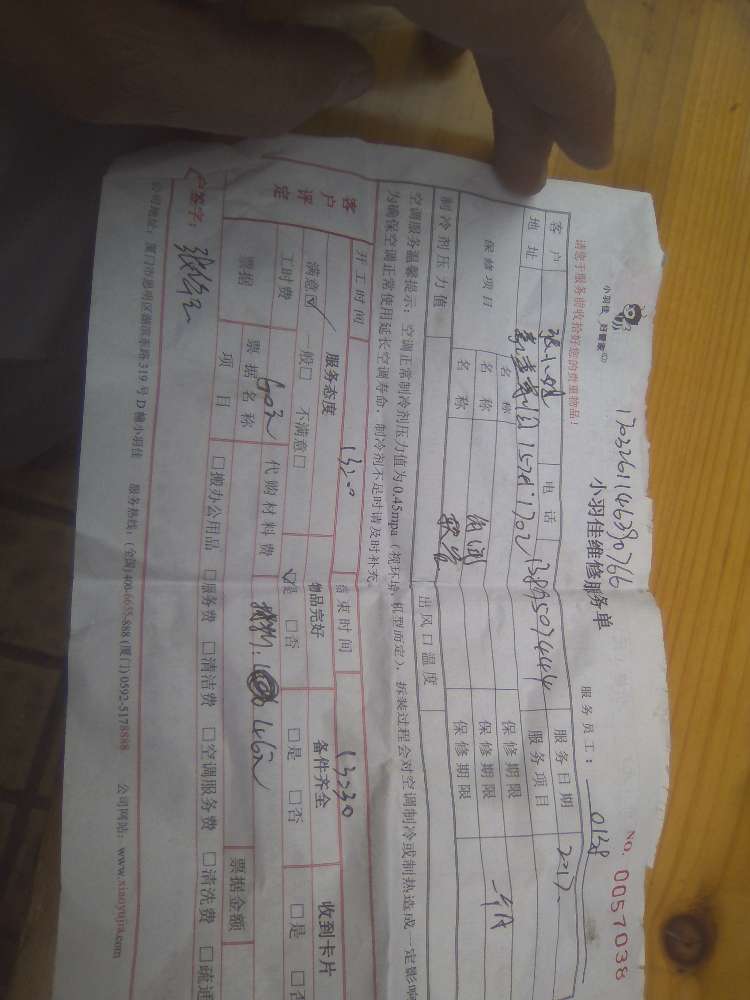 小羽佳 好管家
1703261146380766
NO. 0057038
小羽佳维修服务单
服务员工: 0138
请您于服务前收拾好您的贵重物品!
客户 张小姐 电话 13895074444 服务日期 2017
地址 1702 服务项目
保修项目 名称 保修期限
名称 角阀 保修期限 一个月
名称 软管 保修期限
制冷剂压力值 出风口温度
空调服务温馨提示: 空调正常制冷剂压力值为0.45mpa (视环境、机型而定), 拆装过程会对空调制冷或制热造成一定影响
为确保空调正常使用延长空调寿命, 制冷剂不足时请及时补充。
开工时间 1320 结束时间 13230
客户评定
服务态度 物品完好 备件齐全 收到卡片
满意☑ 一般□ 不满意□ ☑是 □否 □是 □否 □是 □否
工时费 60元 代购材料费 146元
票据 票据名称 票据金额
项目 □搬办公用品 □服务费 □清洁费 □空调服务费 □清洗费 □疏通
客户签字:
公司地址: 厦门市思明区湖滨东路319号D幢小羽佳 服务热线: (全国)400-6655-888 (厦门)0592-5178888 公司网站: www.xiaoyujia.com